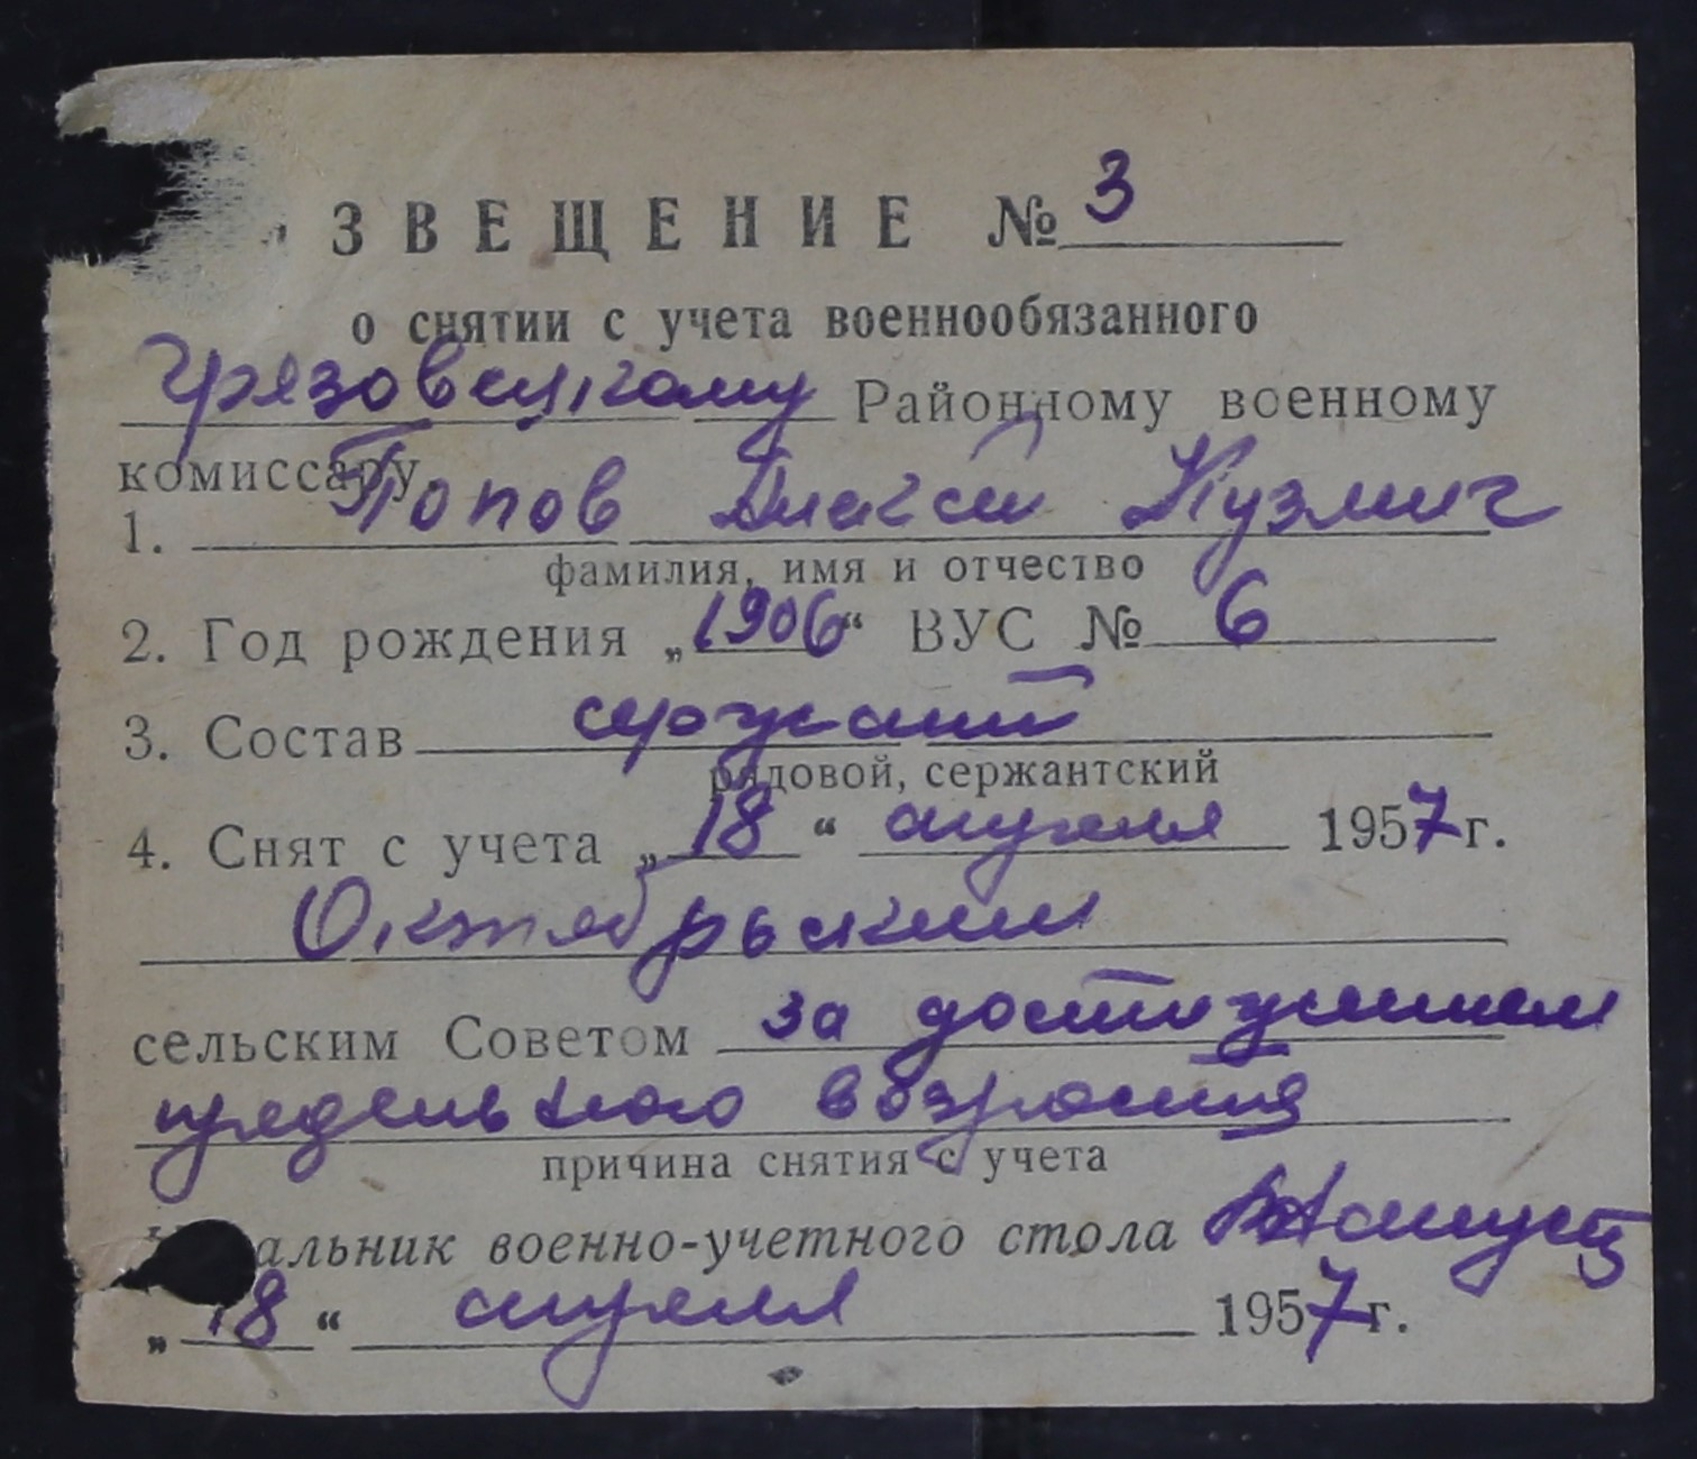 ЗВЕЩЕНИЕ № 3
о снятии с учета военнообязанного
Грязовецкому Районному военному
комиссару.
1. Попов Алексей Кузмич
фамилия, имя и отчество
2. Год рождения „1906“ ВУС № 6
3. Состав сержант
рядовой, сержантский
4. Снят с учета „18“ апреля 1957 г.
Октябрьским
сельским Советом за достижением
предельного возраста
причина снятия с учета
альник военно-учетного стола
„18“ апреля 1957 г.